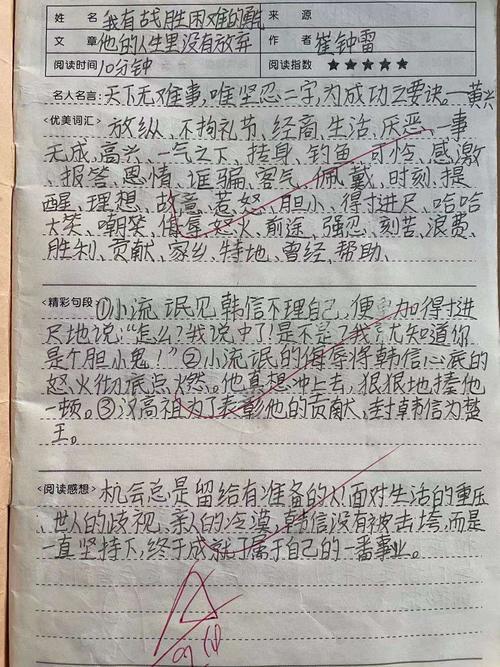 姓 名 我有战胜困难的勇气 来 源
文 章 他的人生里没有放弃 作 者 崔钟雷
阅读时间 10分钟 阅读指数 ★★★★★
名人名言: 天下无难事,唯坚忍二字,为成功之要诀。—黄兴
<优美词汇> 放纵、不拘礼节、经商、生活、厌恶、一事
无成、高兴、一气之下、转身、钓鱼、可怜、感激
、报答、恩情、诓骗、客气、佩戴、时刻、提
醒、理想、故意、惹怒、胆小、得寸进尺、哈哈
大笑、嘲笑、侮辱、怒火、前途、强忍、刻苦、浪费、
胜利、贡献、家乡、特地、曾经、帮助、
<精彩句段> ①小流氓见韩信不理自己,便更加得寸进
尺地说:“怎么?我说中了!是不是?我就知道你
是个胆小鬼!”②小流氓的侮辱将韩信心底的
怒火彻底点燃。他真想冲上去,狠狠地揍他
一顿。③汉高祖为了表彰他的贡献,封韩信为楚
王。
<阅读感想> 机会总是留给有准备的人面对生活的重压
、世人的歧视、亲人的冷漠,韩信没有被击垮,而是
一直坚持下,终于成就了属于自己的一番事业。